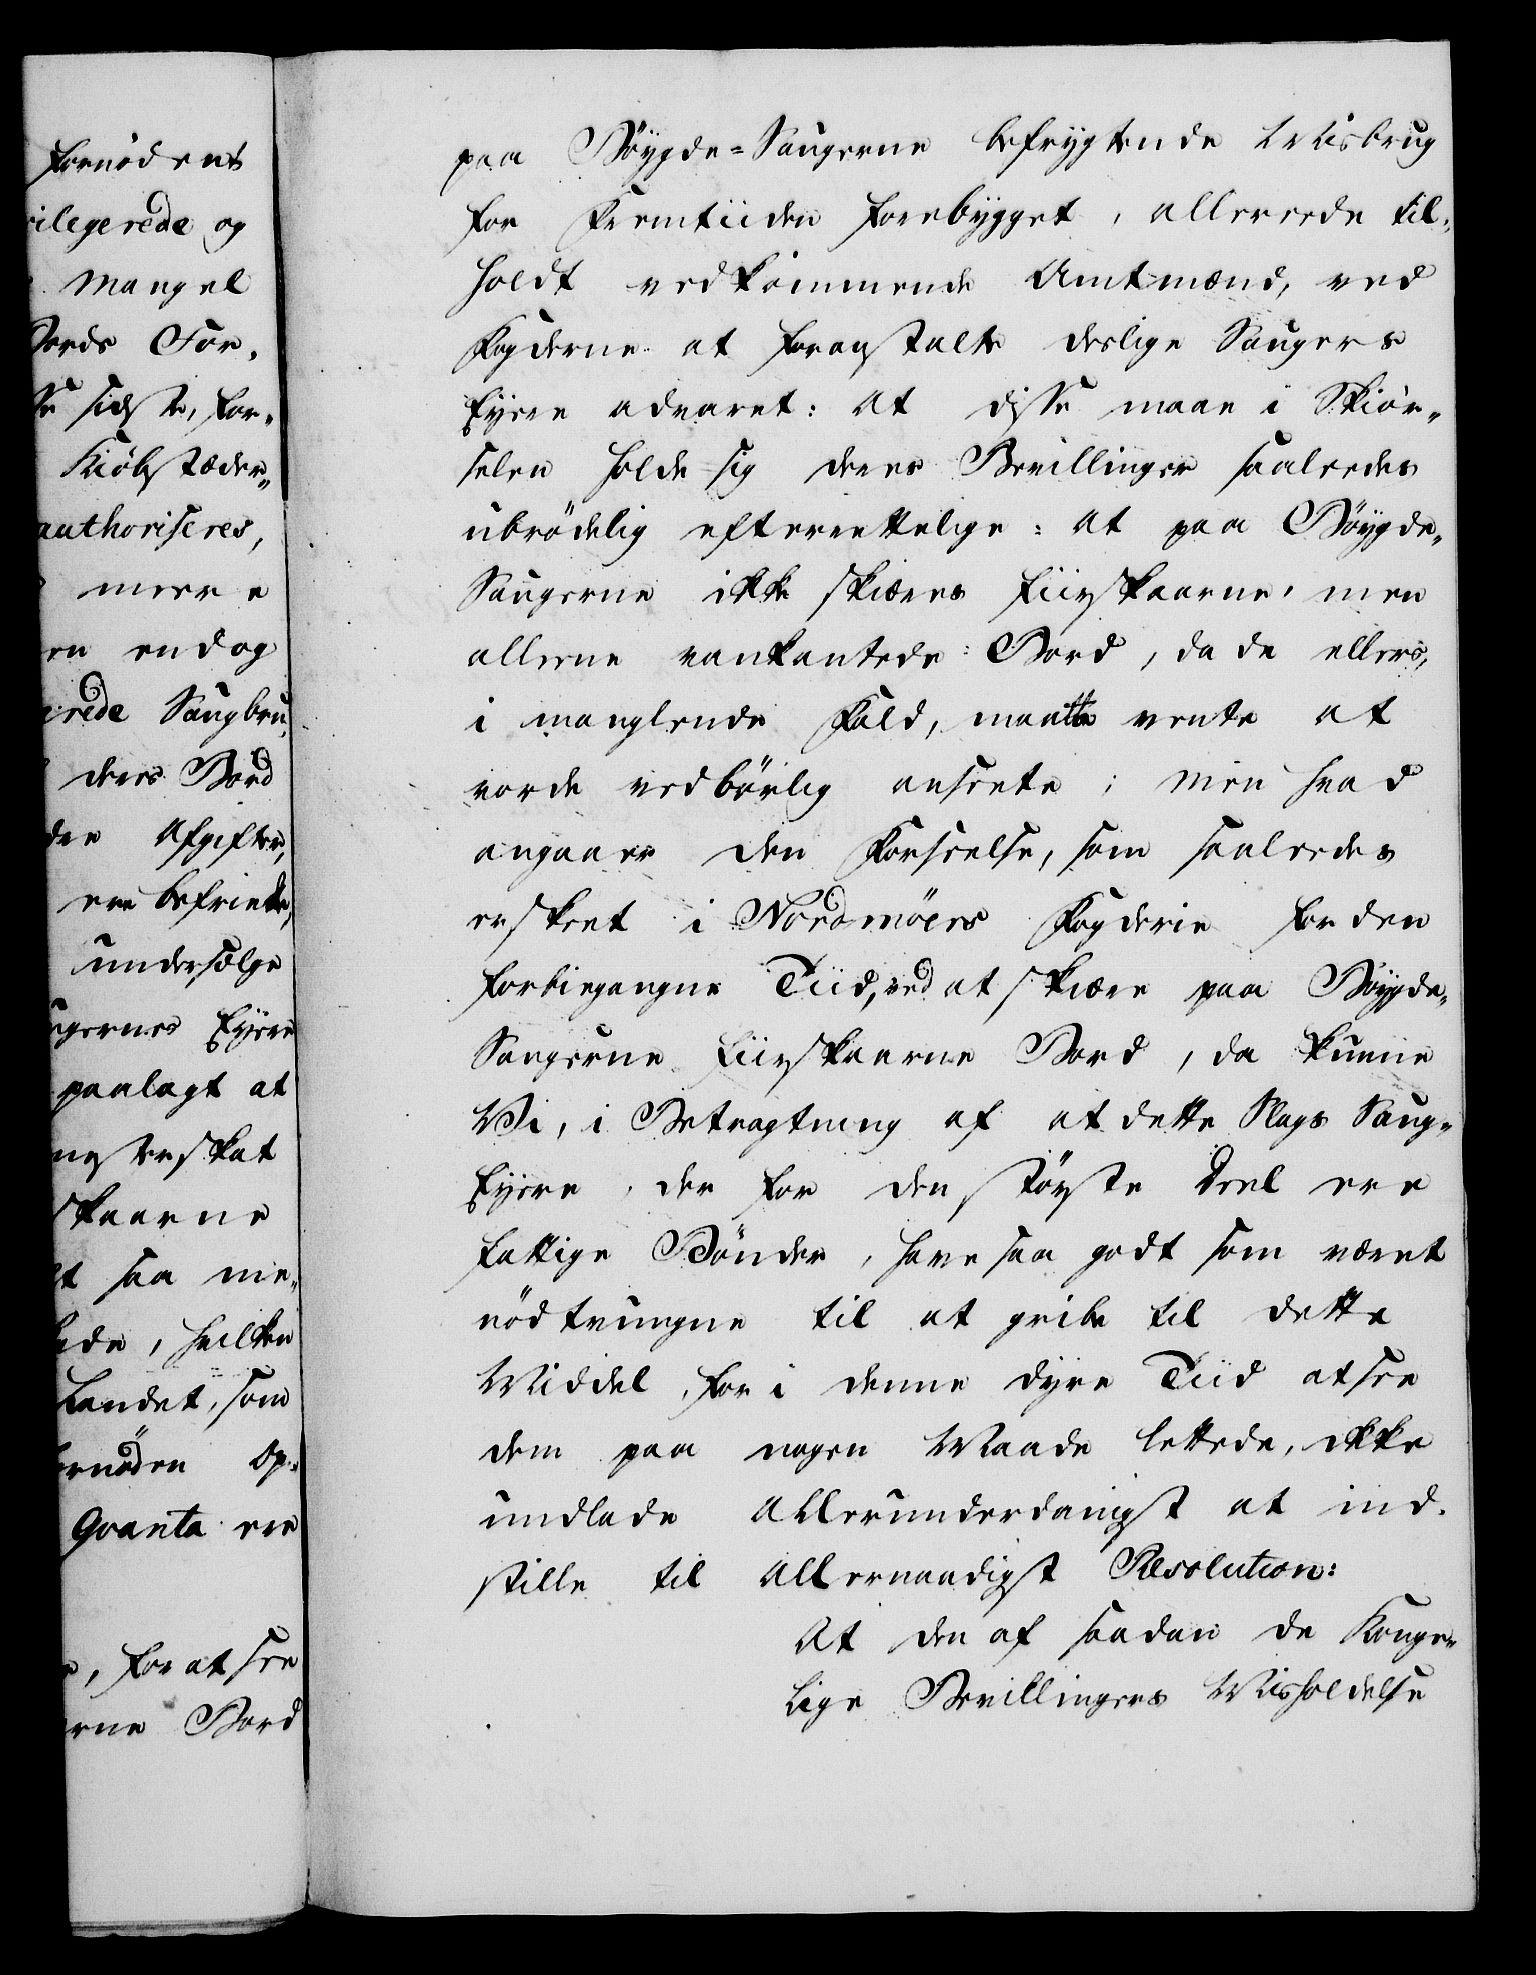 fornödent
ilegerede og
Mangel
Bords For,
sidste, for„
Kiöbstæder„
authoriseres,
meere
en endog
erede Saugbru„
deres Bord
den Afgifter,
ere befriede,
undersælge
gernes Eyere
paalagt at
nesterskat
skaarne
t saa me„
ede, hvilken
Landet, som
ornöden Op„
Qvanta ere
, for at see
rne Bord
paa Böygde=Saugerne befrygtende Misbrug
for Fremtiiden forebygget, allereede til„
holdt vedkommende Amtmænd, ved
Fogderne at foranstalte deslige Saugers
Eyere advaret: At disse maae i Skiör„
selen holde sig deres Bevillinger saaledes
ubrödelig efterrettelige: at paa Böygde„
Saugerne ikke skiæres fiirskaarne, men
alleene vankantede Bord, da de ellers,
i manglende Fald, maatte vente at
vorde vedbörlig ansete; men hvad
angaaer den Forseelse, som saaledes
er skeet i Nordmöers Fogderie for den
forbiegangne Tiid, ved at skiære paa Böygde„
Saugerne fiirskaarne Bord, da kunne
Vi, i Betragtning af at dette Slags Saug„
Eyere, der for den störste Deel ere
fattige Bönder, have saa godt som været
nödtrungne til at gribe til dette
Middel, for i denne dyre Tiid at see
dem paa nogen Maade lettede, ikke
undlade allerunderdanigst at ind„
stille til allernaadigst Resolution:
At den af saadan de Konge„
lige Bevillingers Misholdelse